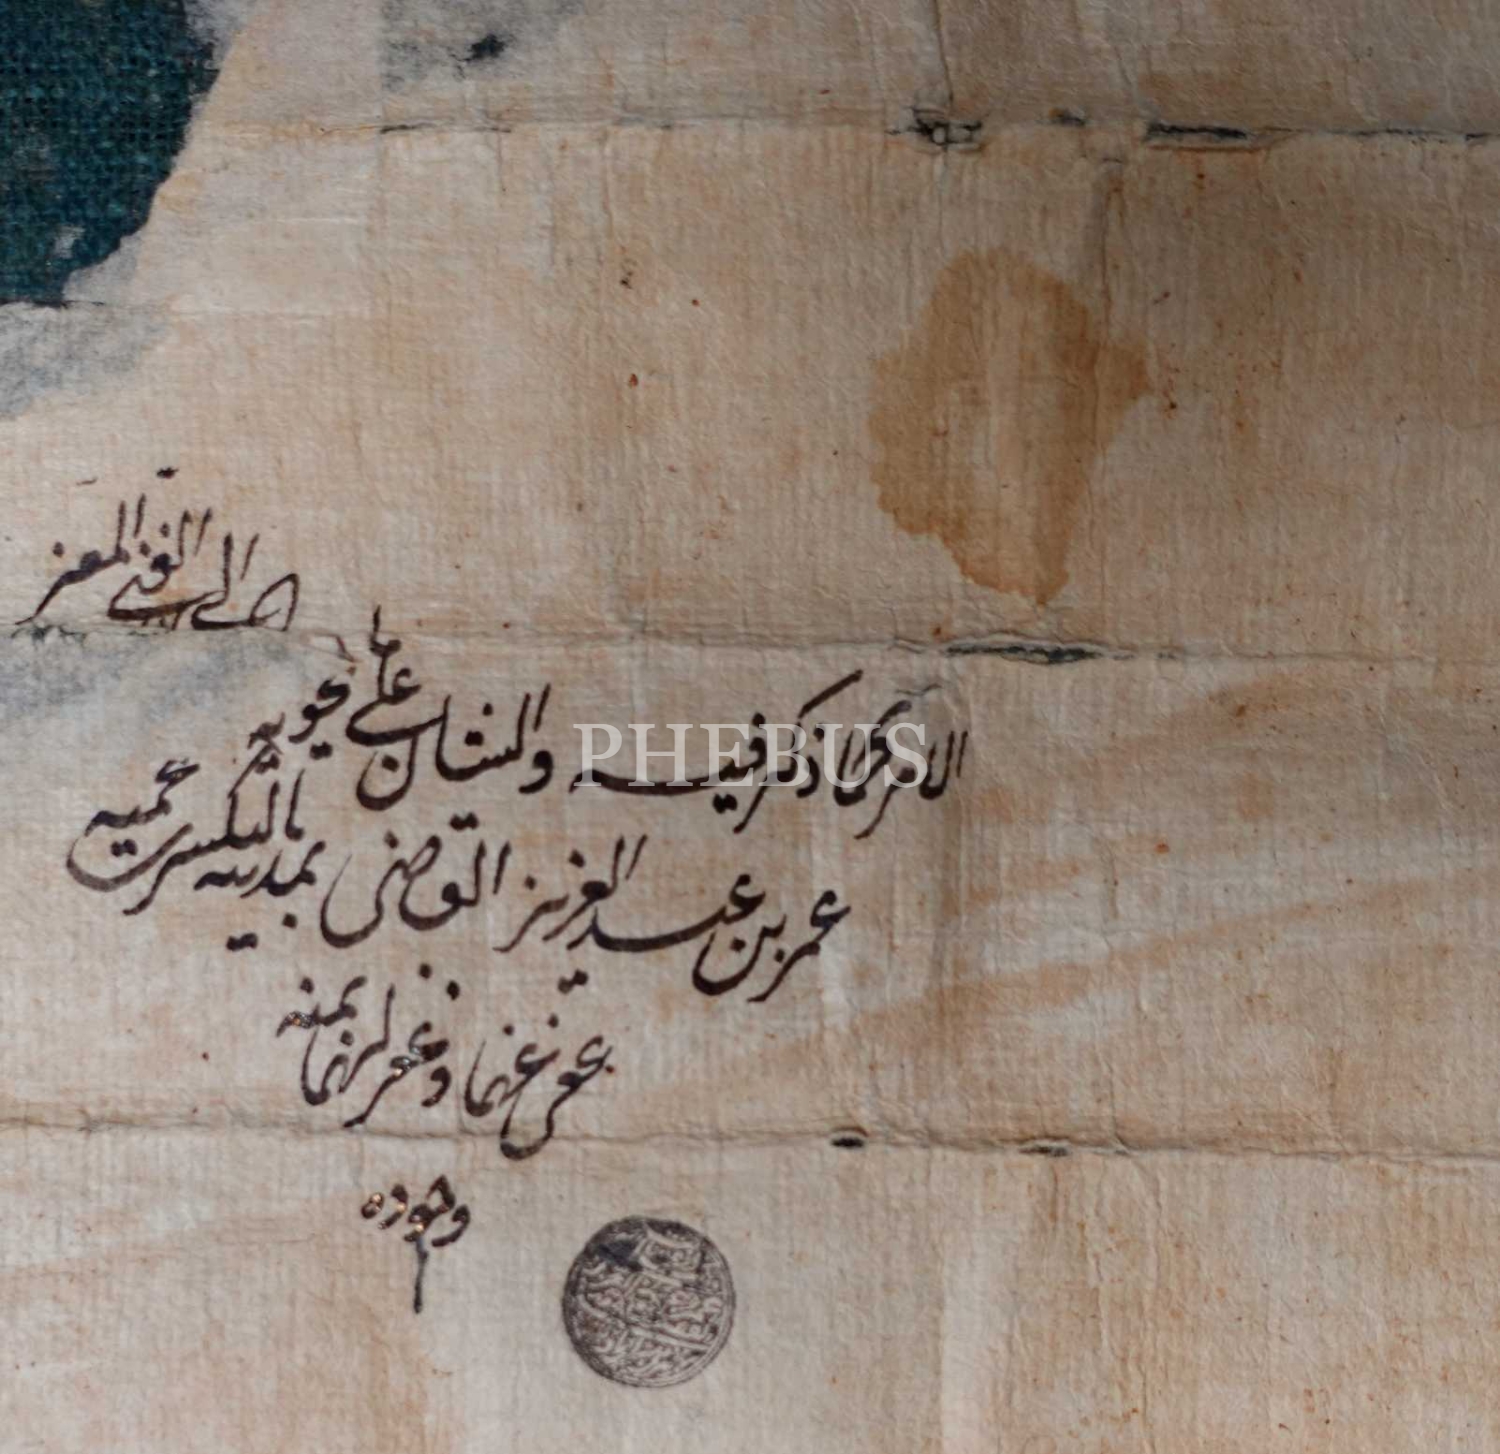 الى الغنى المعز
الامر كما ذكر فيه والشان على نحويه
PHEBUS
عمر بن عبد العزيز القاضى بمدينة بالیکسرى محميه
عفى عنهما وغفر لهما بمنه
وجوده